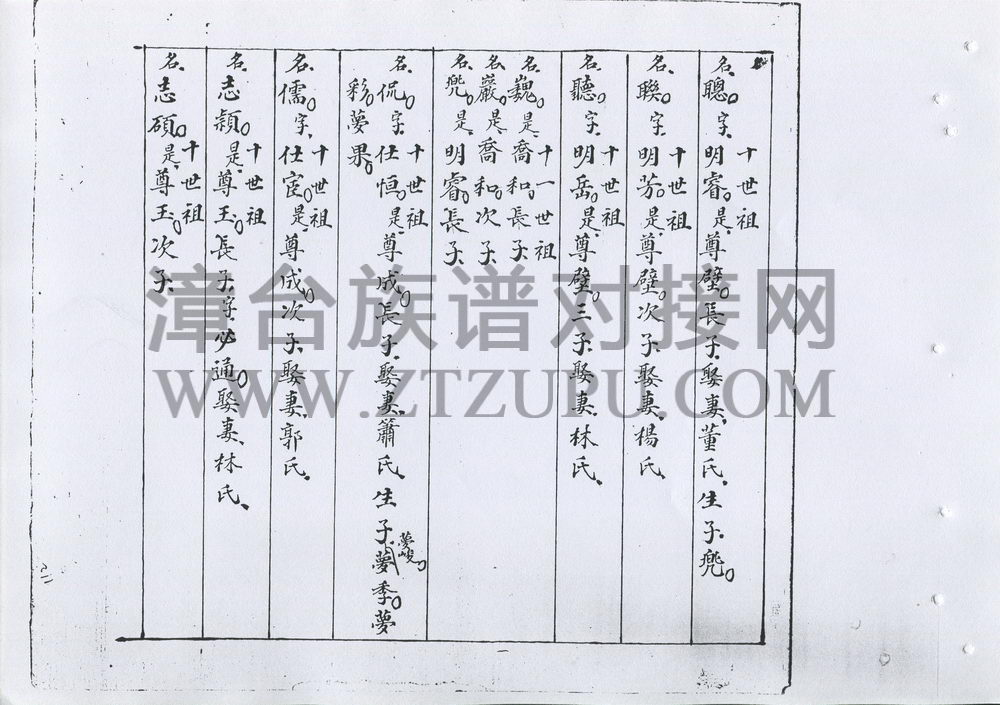 名聰字明睿是尊壁長子娶妻董氏生子兠
十世祖
名聯字明芳是尊壁次子娶妻楊氏
十世祖
名聽字明岳是尊壁三子娶妻林氏
十世祖
名巍是喬和長子
十一世祖
名巖是喬和次子
名兠是明睿長子
名侃字仕恒是尊成長子娶妻簫氏生子夢季夢
十世祖
夢峻
彩夢果
名儒字仕宦是尊成次子娶妻郭氏
十世祖
名志顈是尊玉長子字必通娶妻林氏
十世祖
名志碩是尊玉次子
十世祖
漳台族谱对接网
WWW.ZTZUPU.COM